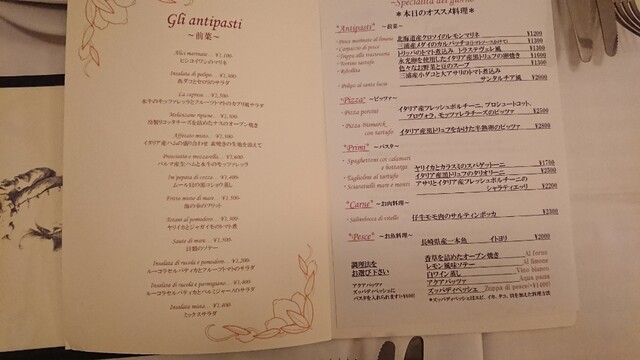 Gli antipasti
～前菜～
Alici marinate... ¥1,300-
ヒシコイワシのマリネ
Insalata di polipo... ¥1,300-
真ダコとセロリのサラダ
La caprese... ¥1,500-
水牛のモッツァレッラとフルーツトマトのカプリ風サラダ
Melanzane ripiene... ¥1,300-
Affettato misto...
イタリア産ハムの盛り合わせ
Prosciutto e mozzarella...
パルマ産生ハムと水牛のモッツァレッラ
Im pepata di cozze...
ムール貝の黒コショウ蒸し
Fritto misto di mare...
海の幸のフリット
Totani al pomodoro...
ヤリイカとジャガイモのトマト煮
Saute di mare...
貝類のソテー
Insalata di rucola e pomodoro...
ルーコラセルバティカとフルーツトマトのサラダ
Insalata di rucola e parmigiano...
ルーコラセルバティカとパルミジャーノのサラダ
Insalata mista...
ミックスサラダ
~Specialita del giorno~
＊本日のオススメ料理＊
"Antipasti" ～前菜～
・Pesce marinato al limone 北海道産クロソイのレモンマリネ ¥1200
・Carpaccio di pesce 三浦産メダイのカルパッチョ ¥1300
・Trippa alla trasteverina トリッパのトマト煮込み トラステヴェレ風 ¥1300
・Tortino tartufo 永光卵を使用したイタリア産黒トリュフの卵焼き ¥1600
・Ribollita 色々なお野菜と豆のスープ ¥1300
・Polipo al santa luca 三浦産小ダコと大アサリのトマト煮込み
サンタルチア風 ¥2000
"Pizza" ～ピッツァ～
・Pizza porcini イタリア産フレッシュポルチーニ、プロシュートコット、
プロヴォラ、モッツァレラチーズのピッツァ ¥2500
・Pizza Bismarck
con tartufo イタリア産黒トリュフをかけた半熟卵のピッツァ ¥2800
"Primi" ～パスタ～
・Spaghettoni con calamari
e bottarga ヤリイカとカラスミのスパゲットーニ ¥1700
・Tagliolini al tartufo イタリア産黒トリュフのタリオリーニ ¥2500
・Sciaratielli mare e monte アサリとイタリア産フレッシュポルチーニの
シャラティエッリ ¥2200
"Carne" ～お肉料理～
・Salimbocca di vitello 仔牛モモ肉のサルティンボッカ ¥2500
"Pesce" ～お魚料理～
長崎県産一本魚 イトヨリ ¥2000
調理法を
お選び下さい
香草を詰めたオーブン焼き Al forno
レモン風味ソテー Al limone
白ワイン蒸し Vino bianco
アクアパッツァ Aqua pazza
ズッパディペッシェ Zuppa di pesce(+¥1400)
アクアパッツァ
ズッパディペッシェに
パスタを入れられます
＊ズッパディペッシェはエビ、イカ、タコ、貝を加えた調理方法